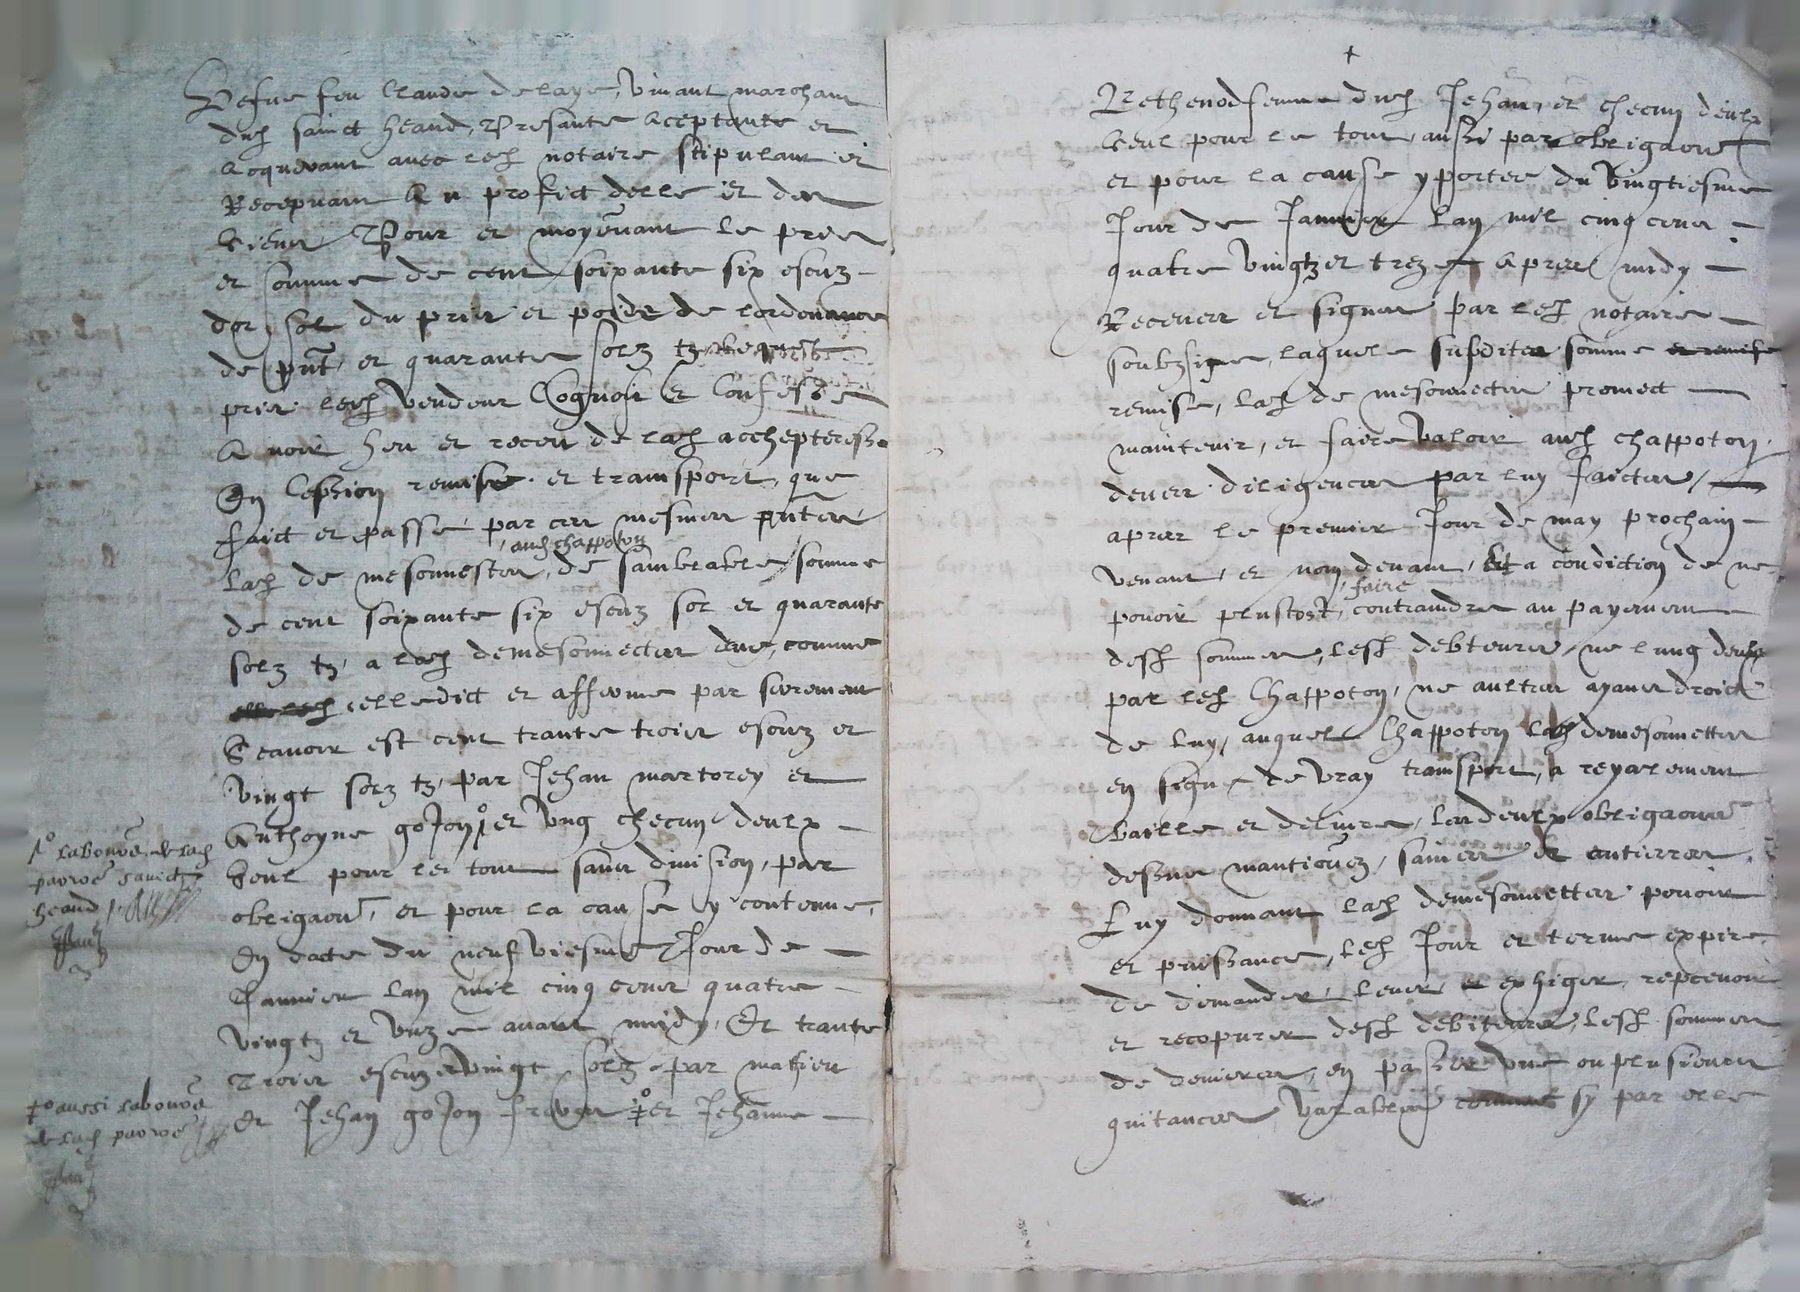 Vefve feu Claude Delaye, vivant marchant
dud sainct Heand, presante aceptante et
acquerant avec led notaire stipulant et
recepvant au profict delle et des
siens Pour et moyenant le pris
et somme de cent soixante six escuz
dor sol du pris et poidz de lordonance
de pnt, et quarante solz tz
pris led vendeur Cognoist et Confesse
avoir heu et receu de lad achepteresse
En cession remise et transport, que
faict et passe par ces mesmes pntes
, aud Chappoton
lad de mesonnettes, de samblable somme
de cent soixante six escuz sol et quarante
solz tz, a lad demesonnettes deue, comme
celle dict et afferme par serement
Scavoir est cent trante troies escuz et
vingt solz tz, par Jehan martorey et
Anthoyne goJon et ung checun deulx
seul pour le tout sans division, par
obligaon, et pour la cause y contenue,
En date du neufviesme Jour de
Janvier lan mil cinq cens quatre
vingtz et unze avant midy, Et trante
troies escuz vingt solz par mathieu
et Jehan goJon freres et Jehanne
labour de lad
parroe sainct
heand
aussi labour
de lad parroe
Bethenod femme dud Jehan, et checun deulx
seul pour le tout, aussi par obligaon
et pour la cause y portee du vingtiesme
Jour de Janvier lan mil cinq cens
quatre vingtz et treze apres midy
Receues et signes par led notaire
soubzsigne, laquele susdite somme et remise
remise, lad de mesonnettes promect
maintenir, et faire valoir aud Chappoton,
deues diligences par luy faictes,
apres le premier Jour de may prochain
venant, et non devant, Et a condiction de ne
, faire
pouoir plustost, contraindre au payement
desd sommes, lesd debteurs, ne lung deulx
par led Chappoton, ne aultres ayans droict
de luy, auquel Chappoton lad demesonnettes
en signe de vray transport, a reyalement
baille et delivre, les deulx obligaons
dessus mantionez, saines et entieres
Luy donnant lad demesonnettes pouoir
et puissance, led Jour et terme expire
de demander, lever et exhiger, repcevoir
et recopvrer desd debiteurs, lesd sommes
de deniers, en passer une ou plusieurs
quitances vaxables sy par elle